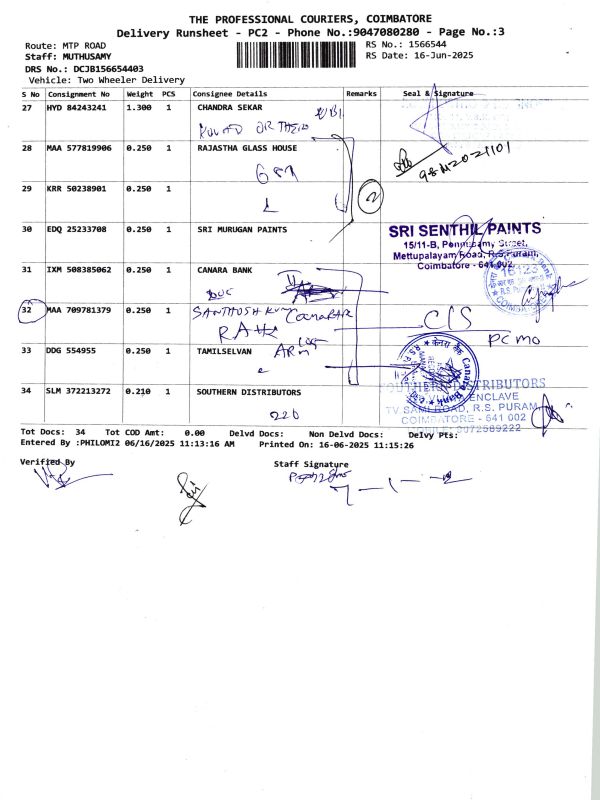 THE PROFESSIONAL COURIERS, COIMBATORE
Delivery Runsheet - PC2 - Phone No.:9047080280 - Page No.:3
Route: MTP ROAD
RS No.: 1566544
Staff: MUTHUSAMY
RS Date: 16-Jun-2025
DRS No.: DCJB156654403
Vehicle: Two Wheeler Delivery
S No Consignment No Weight PCS Consignee Details Remarks Seal & Signature
27 HYD 84243241 1.300 1 CHANDRA SEKAR
28 MAA 577819906 0.250 1 RAJASTHA GLASS HOUSE
29 KRR 50238901 0.250 1
2
30 EDQ 25233708 0.250 1 SRI MURUGAN PAINTS
SRI SENTHIL PAINTS
15/11-B, Ponnusamy Street,
Mettupalayam Road, R.S.Puram,
Coimbatore - 641 002.
31 IXM 508385062 0.250 1 CANARA BANK
32 MAA 709781379 0.250 1 SANTHOSH
33 DDG 554955 0.250 1 TAMILSELVAN
Canara Bank
34 SLM 372213272 0.210 1 SOUTHERN DISTRIBUTORS
SOUTHERN DISTRIBUTORS
ENCLAVE
TV SAMI ROAD, R.S. PURAM
COIMBATORE - 641 002
220
Tot Docs: 34 Tot COD Amt: 0.00 Delvd Docs: Non Delvd Docs: Delvy Pts:
Entered By :PHILOMI2 06/16/2025 11:13:16 AM Printed On: 16-06-2025 11:15:26
Verified By
Staff Signature